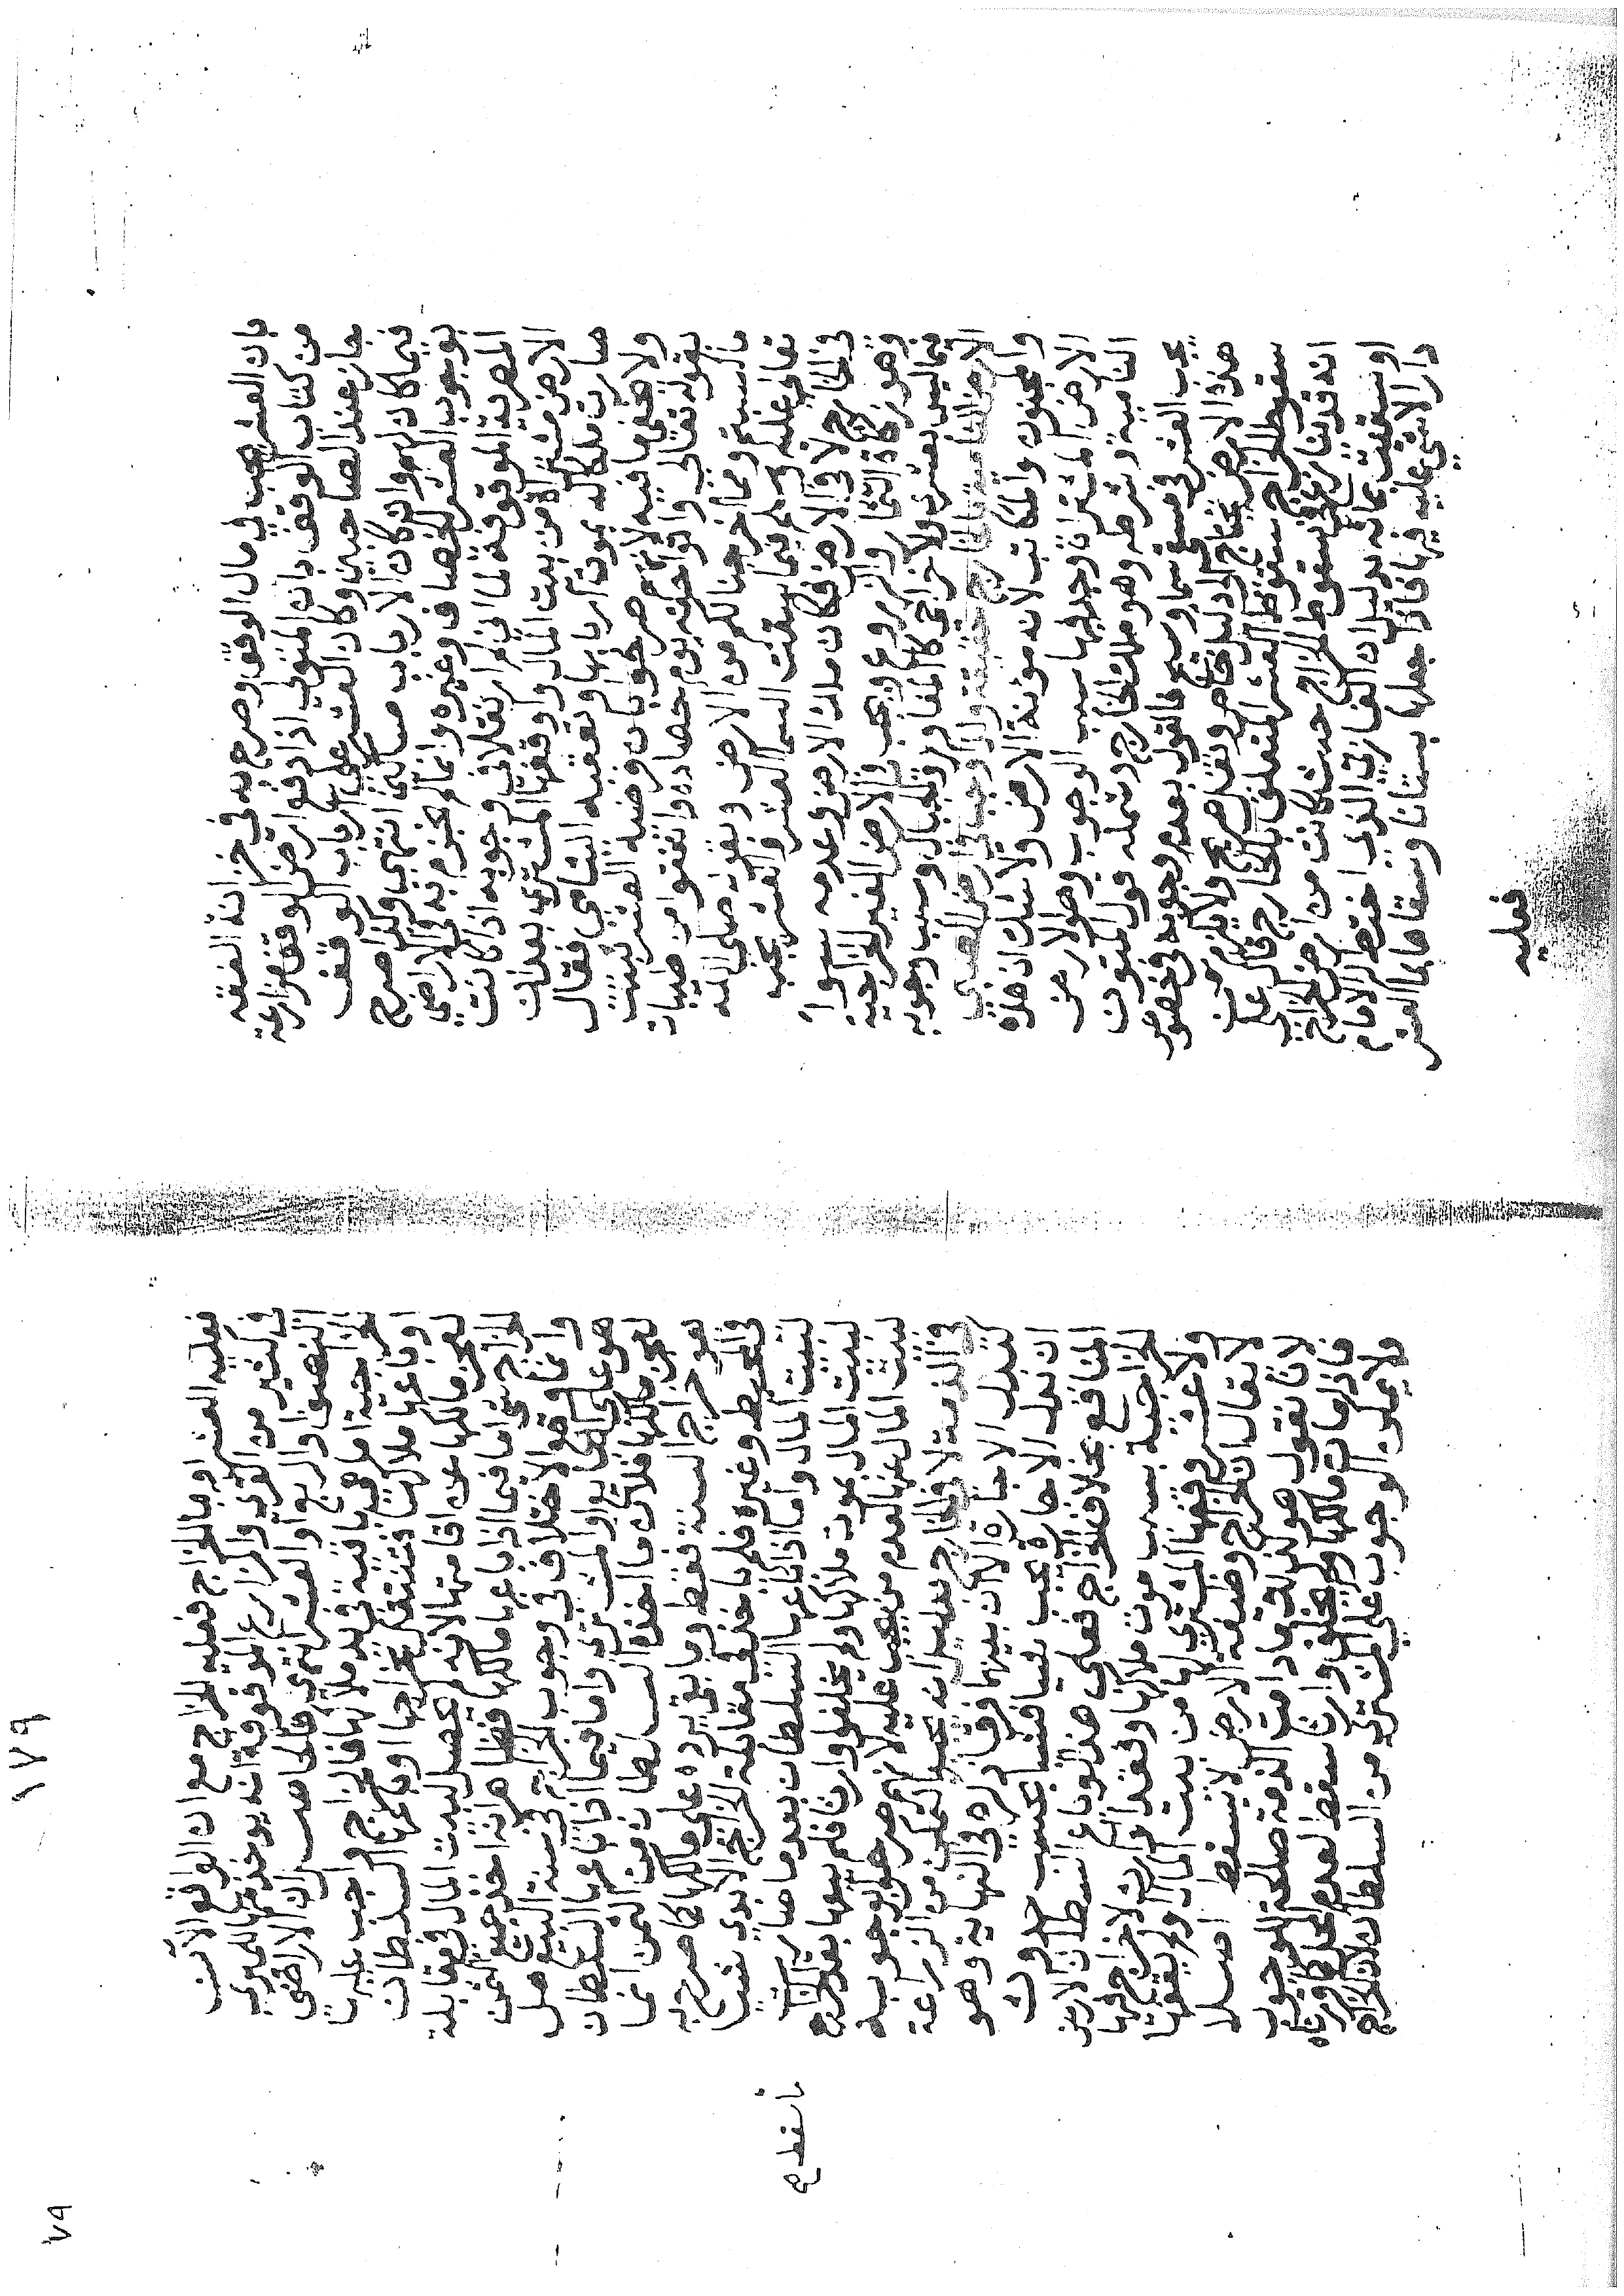 بان العشر يجب في مال الوقف وصرح به في خزانة الفقه
من كتاب الوقف بان المتولي اذا دفع ارض الوقف مزارعة
جاز عند الصاحبين وكان العشر على ارباب الوقف
فيما كان لهم وان كان الارباب مساكين انتهى وكذا صرح
بوجوب العشر الخصاف وغيره وانما لم نجزم به في الاراضي
المصرية الموقوفة لما اني لم ار نقلا في وجوبه اذا كانت
الارض مشتراة من بيت المال ووقفها المشتري بعد ان
صارت ملكا له بموت اربابها وتعقبه الشامي فقال
ولا يخفى ما فيه لانهم صرحوا بان فرضية العشر ثبتت
بقوله تعالى واتوا حقه يوم حصاده وانفقوا من طيبات
ما كسبتم ومما اخرجنا لكم من الارض وبقوله صلى الله
تعالى عليه وسلم فيما سقت السما العشر والعشر يجب
في الخارج لا في الارض فكان ملك الارض وعدمه سواء
وهو زكاة الثمار والزروع ويجب في الارض الغير الخراجية
مما ليس بعشري ولا خراجي كالمفاوز والجبال وسبب وجوبه
الارض النامية بالخارج حقيقة وانه يجب في ارض الصبي
والمجنون والمكاتب لانه مؤنة الارض ولا شك ان هذه
الارض المشتراة وجد فيها سبب الوجوب وهو الارض
النامية وشرطه وهو ملك الخارج وشمله قول المتون
يجب العشر في مسقى سما وسيح فالقول بعدم وجوبه في خصوص
هذه الارض يحتاج الى دليل خاص ونقل صريح ولا يلزم من
سقوط الخراج سقوط العشر المتعلق بالخارج قال على
انه قد ينازع في سقوط الخراج حيث كانت من ارض الخراج
او سقيت بمائه بدليل ان الغازي الذي اختط له الامام
دارا لا شي عليه فيها فاذا جعلها بستانا وسقاها بما العشر
فعليه
١٧٩
٧٩
فعليه العشر او بما الخراج فعليه الخراج مع ان الواقع الآن
في كثير من القرى والمزارع الموقوفة انه يوخذ منها للميري
النصف او الربع او العشر انتهى فالحاصل ان الاراضي
الخراجية اما هي باقية في يد ملاكها فالخراج واجب عليهم
او باعها ملاكها فتنتقل بخراجها او باعها السلطان
لعجز مالكها عن اقامتها لانه لم يحصل لبيت المال في مقابلة
الخراج شي اما فيما اذا باعها مالكها فظاهر انه اخذ جميع الثمن
وانما وقع الاختلاف في وجوب الخراج في سنة البيع هل
هو على البايع او المشتري واما فيما اذا باعها السلطان
لعجز مالكها فلان ما اخذه السلطان من الثمن انما
هو خراج السنة فقط وما بقي يرده على مالكها كما صرح به
في المحيط وغيره فلم ياخذ في مقابلة الخراج الابدي شيئا
لبيت المال واما اذا باعها السلطان بعد ما صارت
لبيت المال بموت ملاكها ولم يخلفوا وارثا فلم بعد الخراج
لبيت المال عنها لعدم من يجب عليه لانهم صرحوا بوجوبه
في الذمة لا في الخارج بدليل انه يجب بالتمكن من الزراعة
الاجارة لان بينهما فرقا ذكره في النهاية وهو
ان الاجارة يجب فشيا بحسب حدوث
المنافع بخلاف الخراج فعلى هذا لو باع السلطان الارض
الخراجية بسبب موت ملاكها وفقد الوارث لا خراج فيها
ولا عشر وقفها المشتري لها من بيت المال ولم يقفها
لا يقال ان الخراج وظيفة الارض لا يسقط اصلا
لانا نقول هو كذلك ما دامت الذمة صالحة للوجوب
فاذا مات مالكها ولم يخلف وارثا سقط لعدم المحل
ولا يمكن الوجوب على المشتري من السلطان لان الخراج